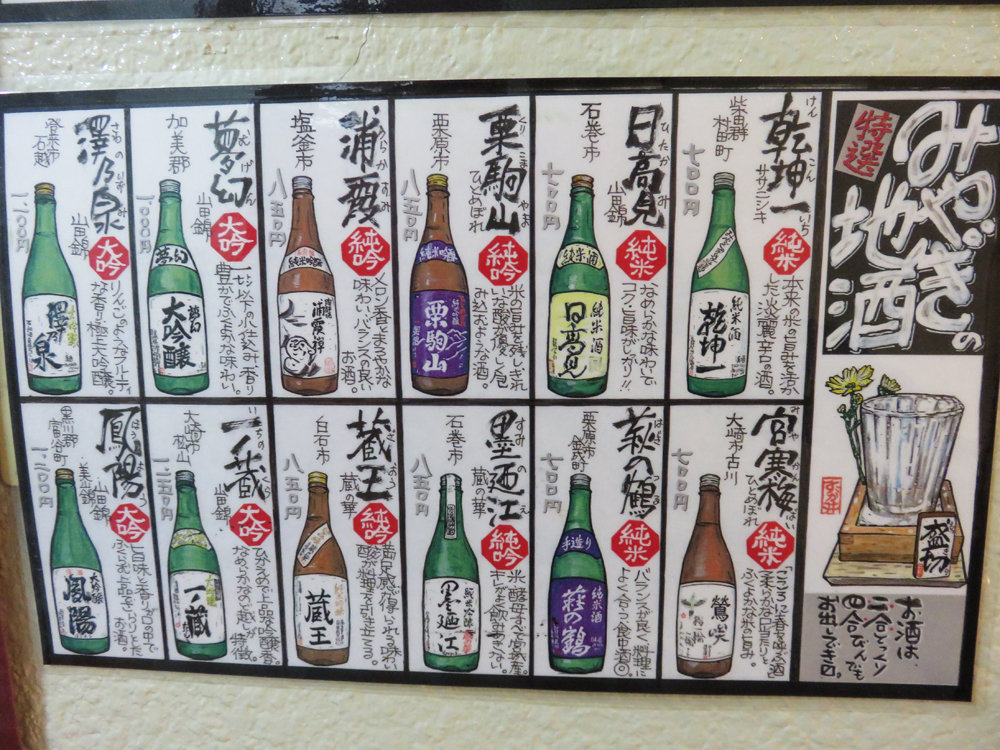 特選
みやぎの
地酒
盛切
お酒は、
二合とっくり
四合びんでも
お出しできます。
乾坤一
けんこんいち
ササニシキ
柴田郡
村田町
七〇〇円
純米
本来の米の旨みを活か
した淡麗辛口の酒。
純米酒
乾坤一
日高見
ひたかみ
山田錦
石巻市
七〇〇円
純米
なめらかな味わいで
コクと旨味がしっかり!!
純米酒
日高見
栗駒山
くりこまやま
ひとめぼれ
栗原市
八五〇円
純吟
米の旨みを残しキレ
な酸が優しく包
み込むような酒。
純米吟醸
栗駒山
浦霞
うらかすみ
塩釜市
八五〇円
純吟
メロン香とまろやかな
味わい、バランスの良い
お酒。
純米吟醸
浦霞禅
夢幻
むげん
山田錦
加美郡
一〇〇〇円
大吟
一七℃以下の水仕込み、香り
豊かでふくよかな味わい。
夢幻
大吟醸
澤乃泉
さわのいずみ
山田錦
登米市
石越
一、一〇〇円
大吟
りんごのようなフルーティ
な香り、極上大吟醸。
澤乃泉
宮寒梅
みやかんばい
ひとめぼれ
大崎市古川
七〇〇円
純米
「こころに春を呼ぶ酒」
柔らかな口当りと
ふくよかな米の旨み。
鶯咲
萩の鶴
はぎのつる
栗原市
金成町
七〇〇円
純米
バランスが良く、料理に
よく合う食中酒◎。
手造り
純米酒
萩の鶴
墨廼江
すみのえ
蔵の華
石巻市
八五〇円
純吟
米、酵母すべて宮城産。
キレがよく飲みあきない。
純米吟醸
墨廼江
蔵王
ざおう
蔵の華
白石市
八五〇円
純吟
満足感が得られる味わい
酸が料理を引き立てる。
蔵王
一ノ蔵
いちのくら
山田錦
大崎市
松山
一、二五〇円
大吟
ひかえめで上品な吟醸香
なめらかなのど越しが特徴
一ノ蔵
鳳陽
ほうよう
山田錦
美山錦
黒川郡
富谷町
一、二〇〇円
大吟
旨味と香りが口の中で
ふくらむ、上品でキリッとした
お酒。
大吟醸
鳳陽